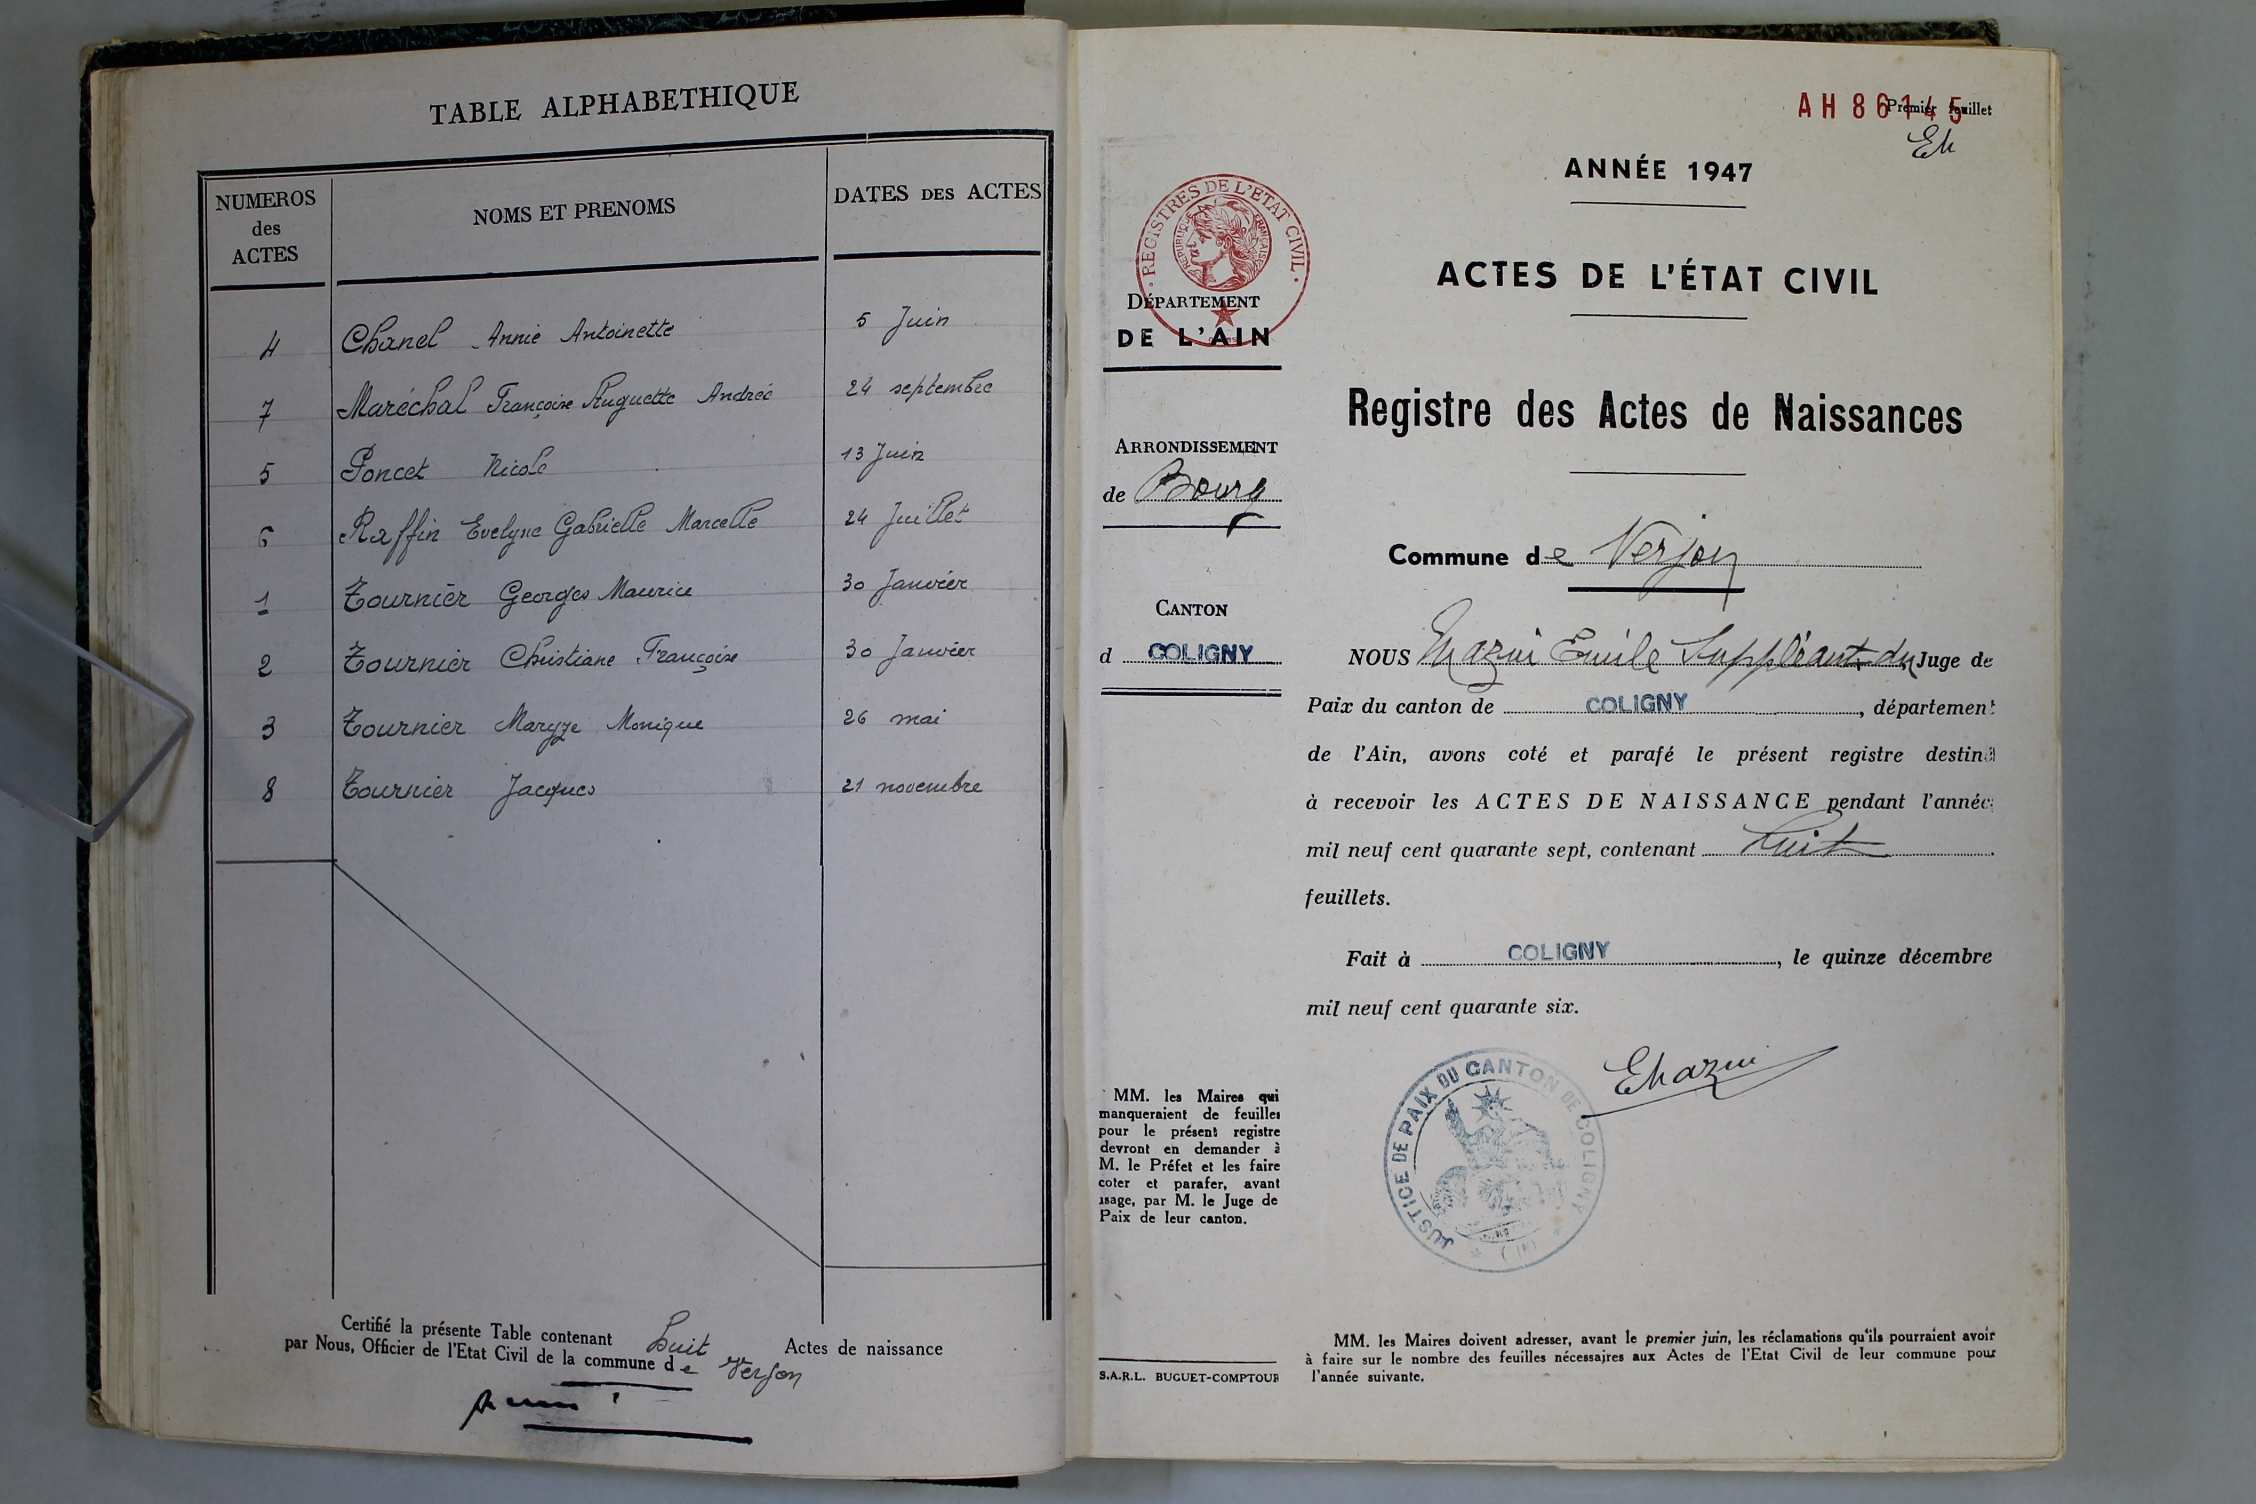 TABLE ALPHABETHIQUE
NUMEROS
des
ACTES
NOMS ET PRENOMS
DATES DES ACTES
4 Chanel Annie Antoinette 5 Juin
7 Maréchal Françoise Huguette Andrée 24 septembre
5 Poncet Nicole 13 Juin
6 Raffin Evelyne Gabrielle Marcelle 24 Juillet
1 Tournier Georges Maurice 30 Janvier
2 Tournier Christiane Françoise 30 Janvier
3 Tournier Maryze Monique 26 mai
8 Tournier Jacques 21 novembre
Certifié la présente Table contenant huit Actes de naissance
par Nous, Officier de l'Etat Civil de la commune de Verjon
AH 86145
Premier feuillet
EM
REGISTRES DE L'ETAT CIVIL
REPUBLIQUE FRANÇAISE
DÉPARTEMENT
DE L'AIN
ARRONDISSEMENT
de Bourg
CANTON
d COLIGNY
MM. les Maires qui
manqueraient de feuilles
pour le présent registre
devront en demander à
M. le Préfet et les faire
coter et parafer, avant
usage, par M. le Juge de
Paix de leur canton.
S.A.R.L. BUGUET-COMPTOUR
ANNÉE 1947
ACTES DE L'ÉTAT CIVIL
Registre des Actes de Naissances
Commune de Verjon
NOUS Mazui Emile Suppléant du Juge de
Paix du canton de COLIGNY, département
de l'Ain, avons coté et parafé le présent registre destiné
à recevoir les ACTES DE NAISSANCE pendant l'année
mil neuf cent quarante sept, contenant huit
feuillets.
Fait à COLIGNY, le quinze décembre
mil neuf cent quarante six.
EMazui
JUSTICE DE PAIX DU CANTON DE COLIGNY
MM. les Maires doivent adresser, avant le premier juin, les réclamations qu'ils pourraient avoir
à faire sur le nombre des feuilles nécessaires aux Actes de l'Etat Civil de leur commune pour
l'année suivante.